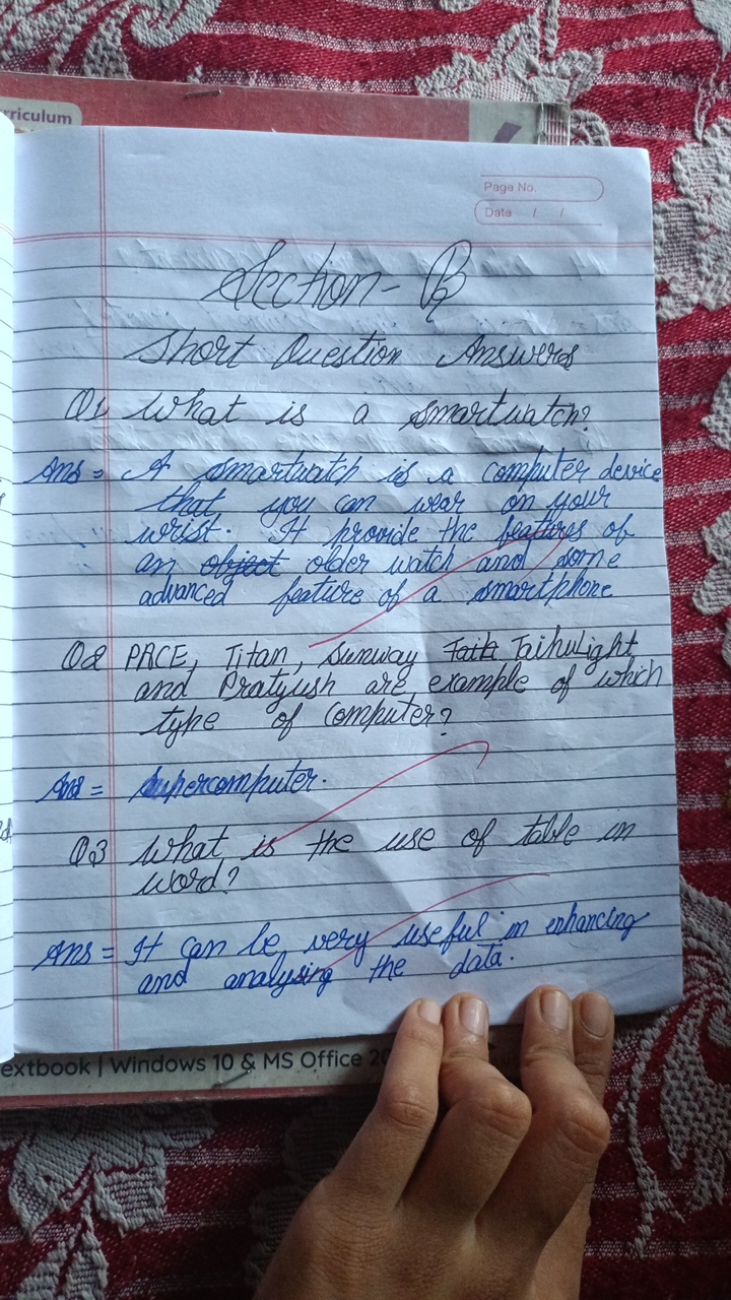 rriculum
Page No.
Date / /
Section - B
Short Question Answers
Q1 What is a smartwatch?
Ans = A smartwatch is a computer device
that you can wear on your
wrist. It provide the features of
an object older watch and some
advanced feature of a smartphone
Q2 PACE, Titan, Sunway Taih TaihuLight
and Pratyush are example of which
type of computer?
Ans = Supercomputer.
Q3 What is the use of table in
word?
Ans = It can be very useful in enhancing
and analysing the data.
extbook | Windows 10 & MS Office 20